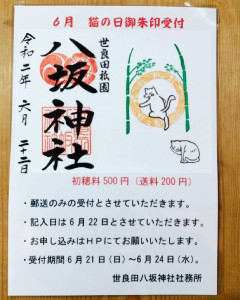 6月 猫の日御朱印受付
世良田祇園
八坂神社
令和二年 六月 二十二日
初穂料500円（送料200円）
・郵送のみの受付とさせていただきます。
・記入日は6月22日とさせていただきます。
・お申し込みはHPにてお願いいたします。
・受付期間6月21日（日）～6月24日（水）。
世良田八坂神社社務所